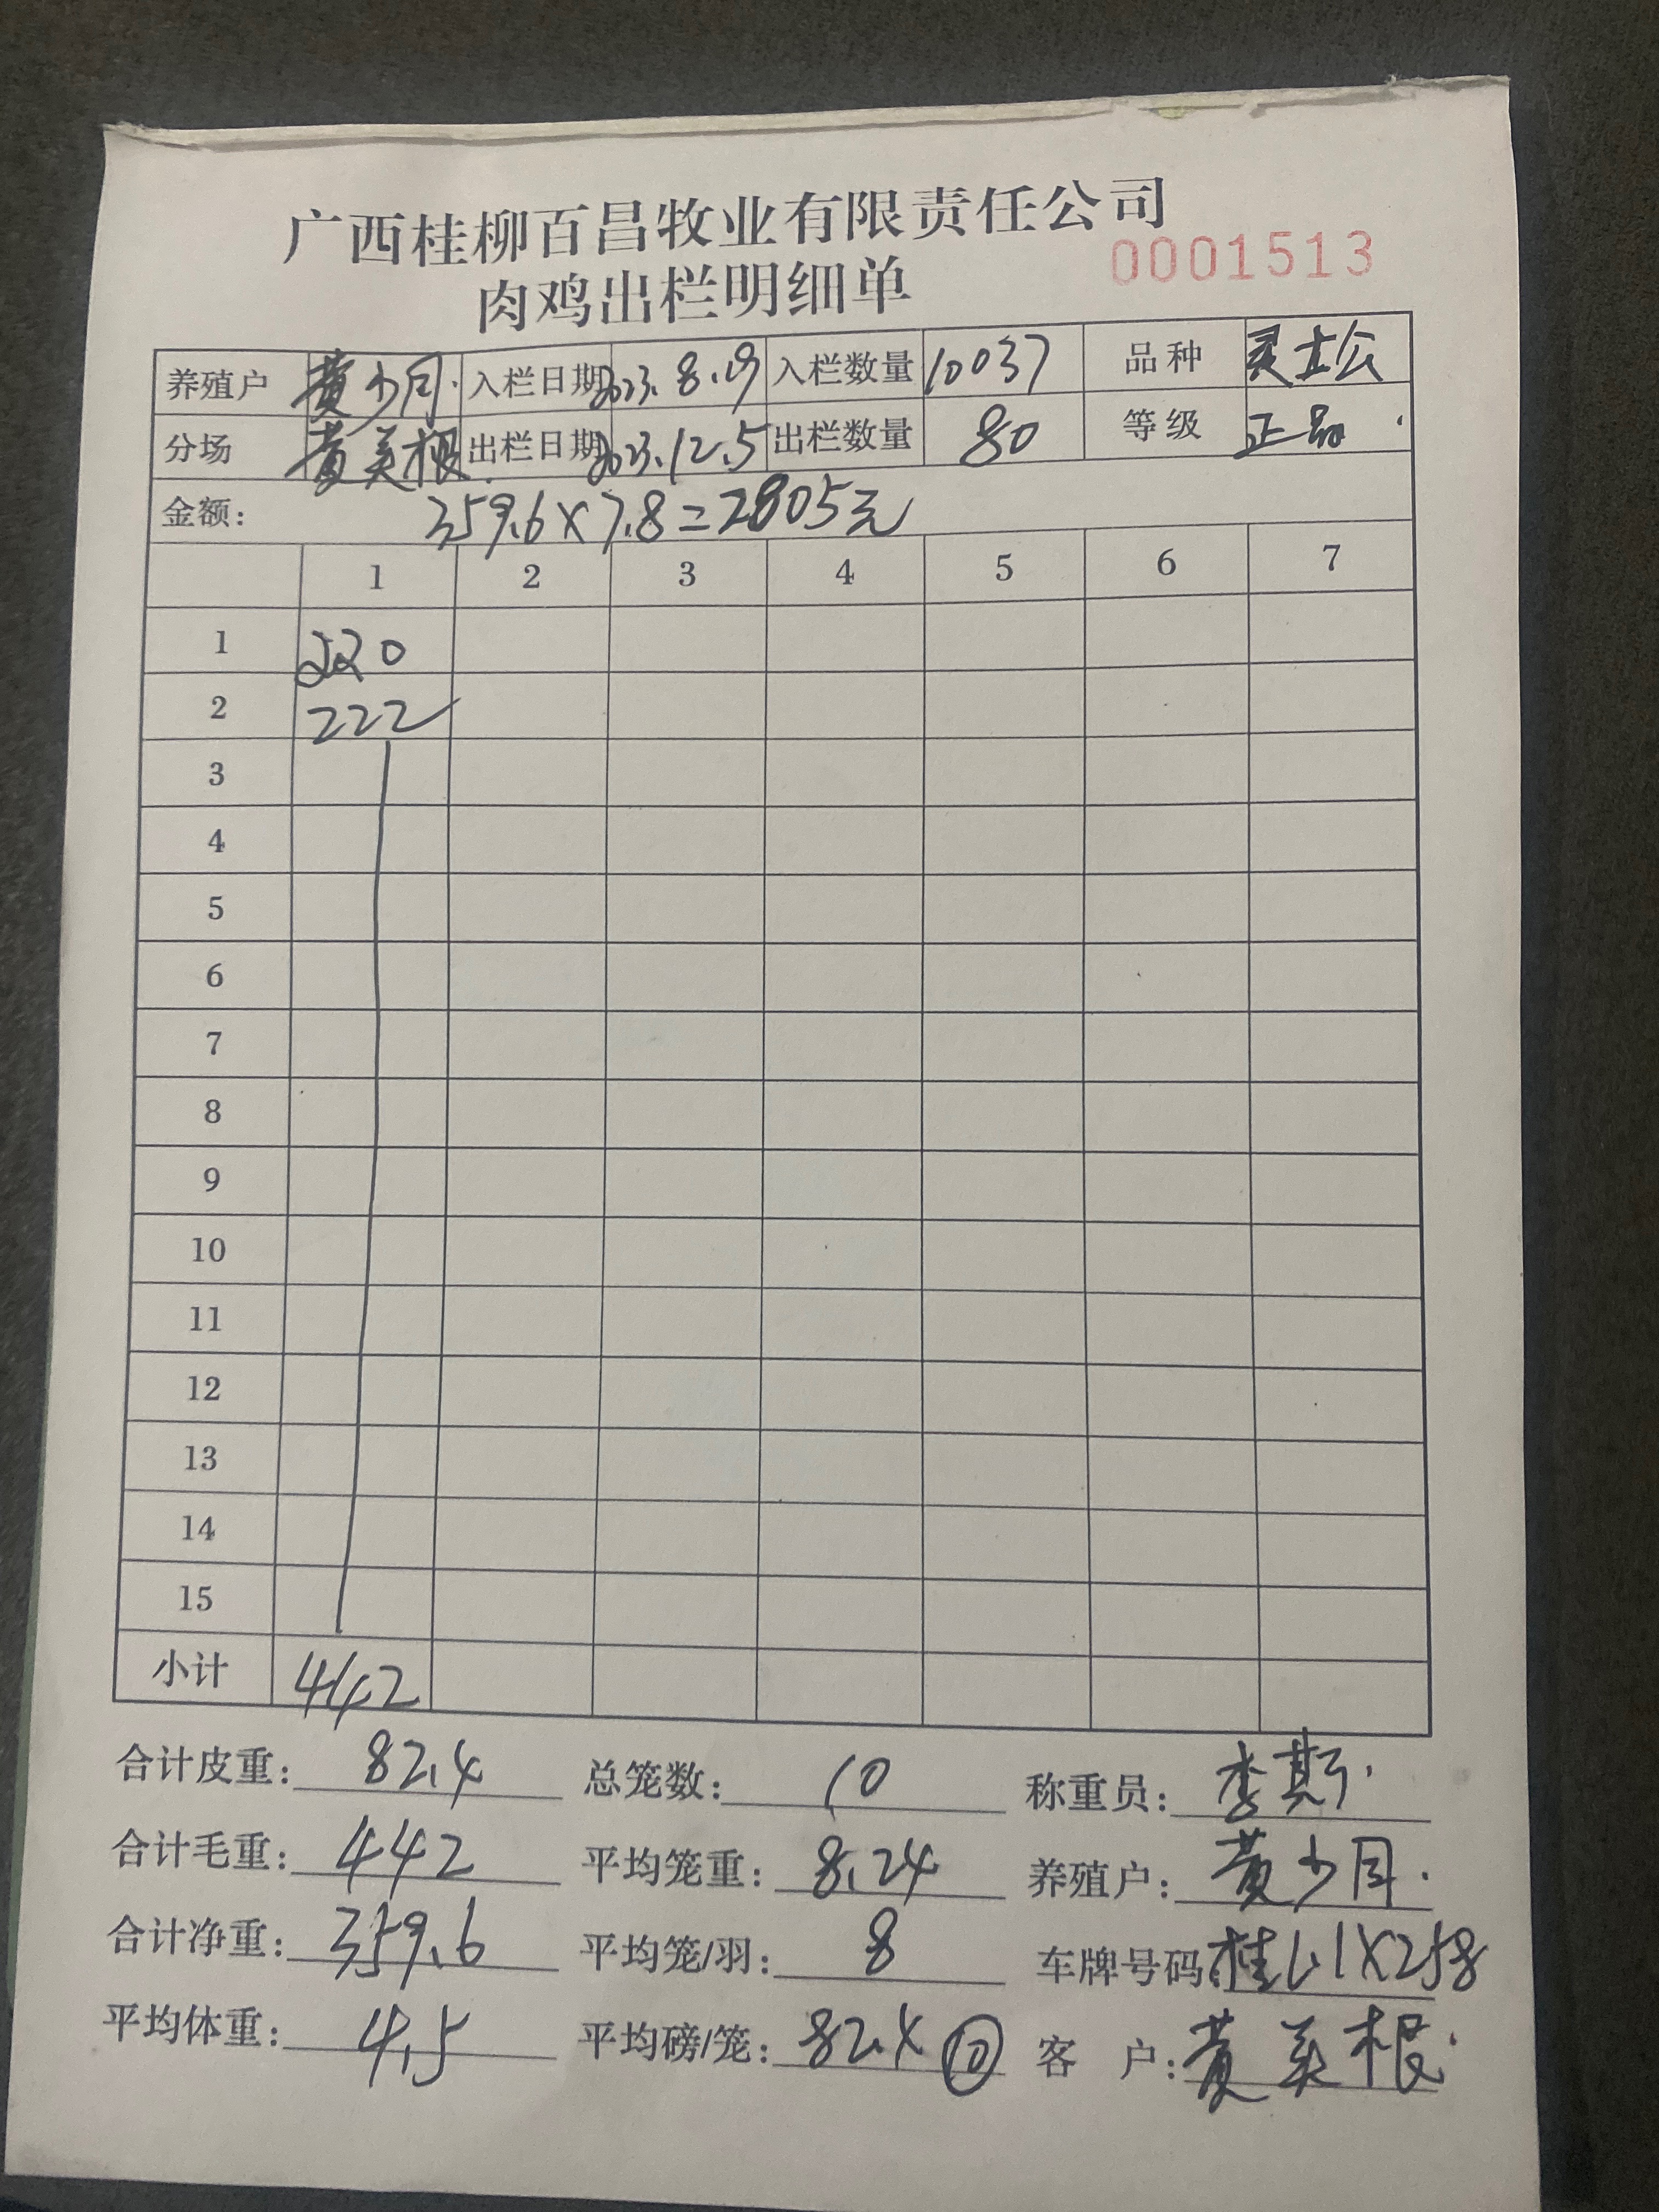 广西桂柳百昌牧业有限责任公司
肉鸡出栏明细单 0001513
养殖户 黄少月 入栏日期 2023.8.19 入栏数量 10037 品种 灵土公
分场 黄美根 出栏日期 2023.12.5 出栏数量 80 等级 正品
金额: 359.6×7.8=2805元
1 2 3 4 5 6 7
1 220
2 222
3
4
5
6
7
8
9
10
11
12
13
14
15
小计 442
合计皮重: 82.4 总笼数: 10 称重员: 李斯
合计毛重: 442 平均笼重: 8.24 养殖户: 黄少月
合计净重: 359.6 平均笼/羽: 8 车牌号码: 桂 1X258
平均体重: 4.5 平均磅/笼: 82.4 ⑩ 客 户: 黄美根